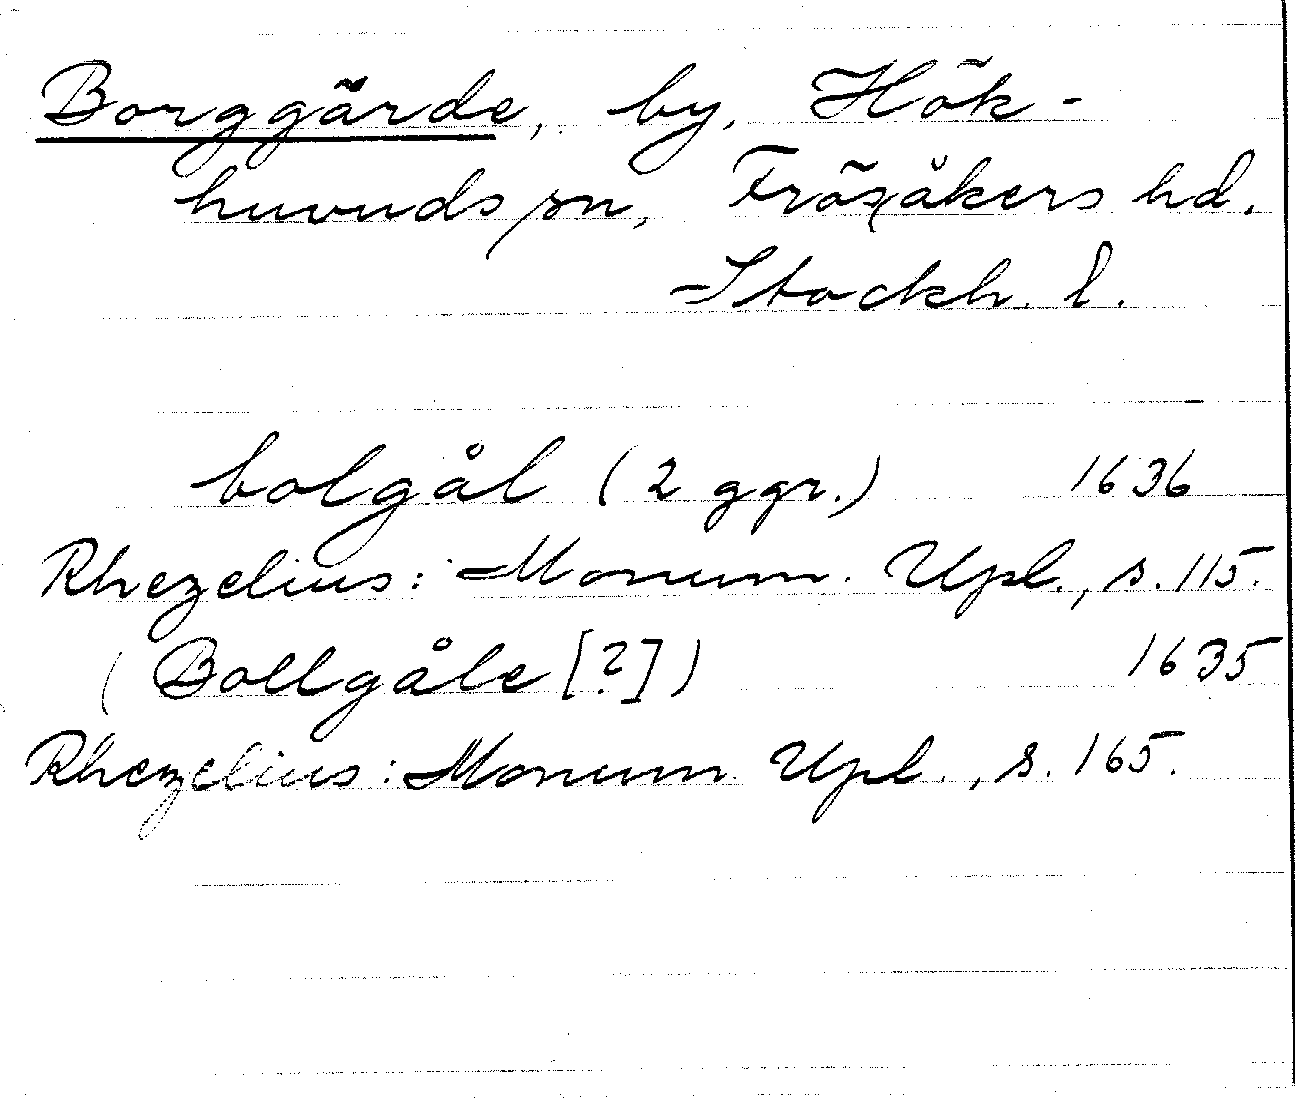 Borggärde, by, Hök-
huvuds sn, Frösåkers hd.
Stockh. l.
bolgål (2 ggr.) 1636
Rhezelius: Monum. Upl., s. 115.
(Bollgåle [?]) 1635
Rhezelius: Monum. Upl., s. 165.